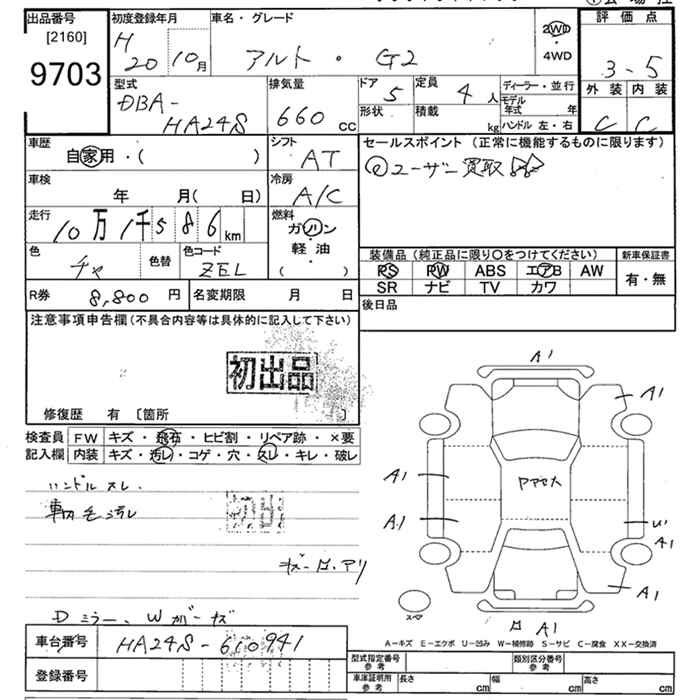 出品番号
[2160]
9703
初度登録年月
H
20 10 月
車名・グレード
アルト ・ G2
2WD
・
4WD
評価点
3-5
外装 内装
C C
型式
DBA-
HA24S
排気量
660 cc
ドア
5
定員
4 人
形状
積載
kg
ディーラー・並行
モデル
年式 年
ハンドル 左・右
車歴
自家用・( )
シフト
AT
セールスポイント (正常に機能するものに限ります)
ユーザー買取
車検
年 月( 日)
冷房
A/C
走行
10万1千586 km
燃料
ガソリン
・
軽油
( )
色
チャ
色替
色コード
ZEL
装備品 (純正品に限り○をつけてください)
PS PW ABS エアB AW
SR ナビ TV カワ
新車保証書
有・無
R券 8,800 円
名変期限 月 日
後日品
注意事項申告欄(不具合内容等は具体的に記入して下さい)
初出品
修復歴 有 〔箇所 〕
検査員
記入欄
FW キズ・飛石・ヒビ割・リペア跡・×要
内装 キズ・汚レ・コゲ・穴・スレ・キレ・破レ
ハンドルスレ.
車内毛汚レ
初出
Dミラー、Wガーズ
車台番号 HA24S-610941
登録番号
A1
A1
A1
A1
A1
U1
A1
A1
スペア
A-キズ E-エクボ U-凹み W-補修跡 S-サビ C-腐食 XX-交換済
型式指定番号
参考
類別区分番号
参考
車庫証明用
参考
長さ cm 幅 cm 高さ cm